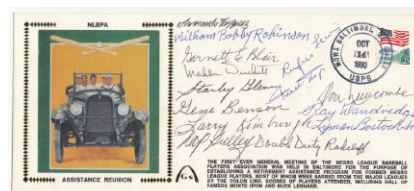 NLBPA
ASSISTANCE REUNION
Armando Vazquez
William Bobby Robinson
Garnett E Blair
Mahlon Duckett
Rufus Lewis
Stanley Glenn
Don Newcombe
Gene Benson
Ray Dandridge
Larry Kimbrough
Lyman Bostock
Double Duty Radcliff
MOWS BALTIMORE,
OCT
1990
USPS
THE FIRST EVER GENERAL MEETING OF THE NEGRO LEAGUE BASEBALL
PLAYERS ASSOCIATION WAS HELD IN BALTIMORE FOR THE PURPOSE OF
ESTABLISHING A RETIREMENT ASSISTANCE PROGRAM FOR FORMER NEGRO
LEAGUE PLAYERS, MOST OF WHOM WERE BARRED FROM THE MAJOR LEAGUES
BY THE COLOR LINE. DOZENS OF PLAYERS ATTENDED, INCLUDING HALL-
FAMERS MONTE IRVIN AND BUCK LEONARD.